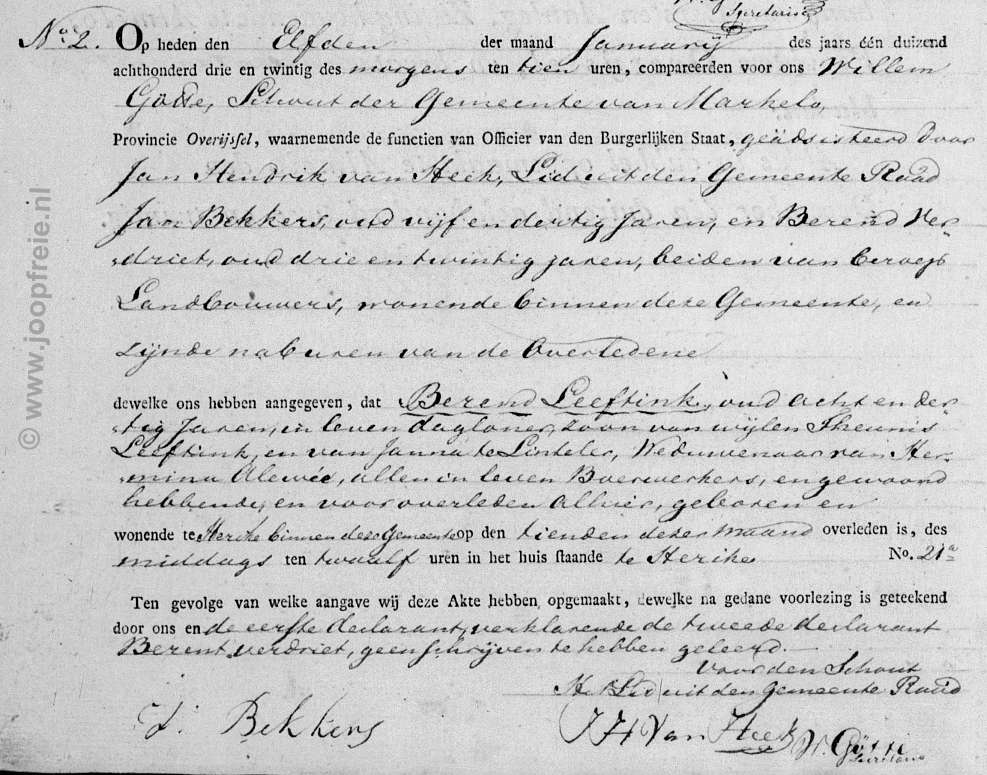 Secretaris
No. 2. Op heden den Elfden der maand Januarij des jaars één duizend
achthonderd drie en twintig des morgens ten tien uren, compareerden voor ons Willem
Götte, Schout der Gemeente van Markelo,
Provincie Overijssel, waarnemende de functien van Officier van den Burgerlijken Staat, geadsisteerd door
Jan Hendrik van Heek, Lid uit den Gemeente Raad
Jan Bekkers, oud vijf en dertig Jaren, en Berend Ver-
driet, oud drie en twintig jaren, beiden van beroep
Landbouwers, wonende binnen deze Gemeente, en
zijnde naburen van de Overledene
dewelke ons hebben aangegeven, dat Berend Leeftink, oud acht en der-
tig Jaren, in leven dagloner, zoon van wijlen Theunis
Leeftink, en van Janna te Linteler, Weduwenaar van Her-
mina Alewée, allen in leven Boerwerkers, en gewoond
hebbende, en vooroverleden Alhier, geboren en
wonende te Herike binnen deze Gemeente op den tienden dezer maand overleden is, des
middags ten twaalf uren in het huis staande te Herike No. 21a
Ten gevolge van welke aangave wij deze Akte hebben opgemaakt, dewelke na gedane voorlezing is geteekend
door ons en de eerste declarant, verklarende de tweede declarant
Berent verdriet, geen schrijven te hebben geleerd.
Voor den Schout
Het Lid uit den Gemeente Raad
J. Bekkers JH Van Heek W. Götte
Secretaris
© www.joopfreie.nl